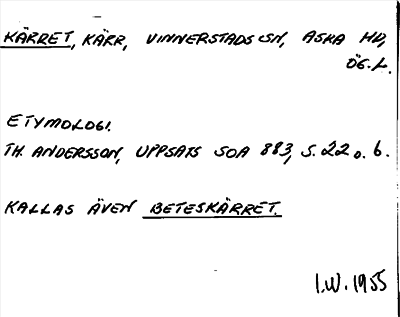 KÄRRET, KÄRR, VINNERSTADS SN, ASKA HD,
ÖG.L.
ETYMOLOGI.
TH. ANDERSSON, UPPSATS SOA 883, S. 22 o. 6.
KALLAS ÄVEN BETESKÄRRET.
I.W. 1955